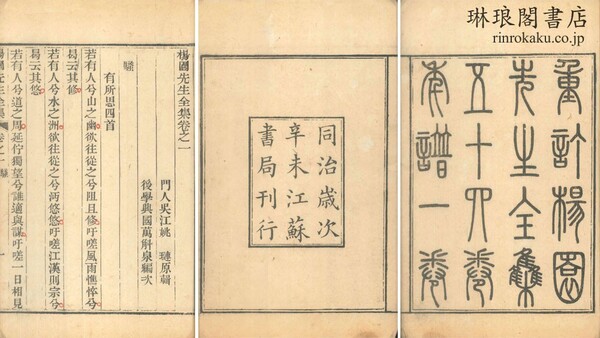 琳琅閣書店
rinrokaku.co.jp
重訂楊園
先生全集
五十四卷
年譜一卷
同治歲次
辛未江蘇
書局刊行
楊園先生全集卷之一
門人吳江姚 璉原輯
後學興國萬斛泉編次
騷
有所思四首
若有人兮山之幽欲往從之兮阻且脩吁嗟風雨憔悴兮
曷云其修
若有人兮水之洲欲往從之兮沔悠悠吁嗟江漢則宗兮
曷云其悠
若有人兮道之周延佇獨望兮誰適與謀吁嗟一日相見
楊園先生全集 卷之一 騷 一